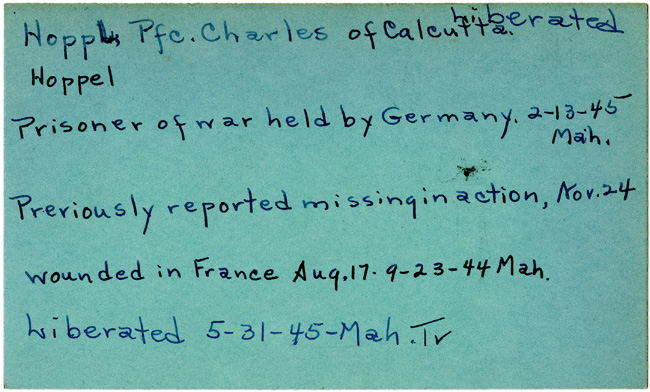 Hoppl, Pfc. Charles of Calcutta. Liberated
Hoppel
Prisoner of war held by Germany. 2-13-45
Mah.
Previously reported missing in action, Nov. 24
wounded in France Aug. 17. 9-23-44 Mah.
Liberated 5-31-45-Mah. Tr